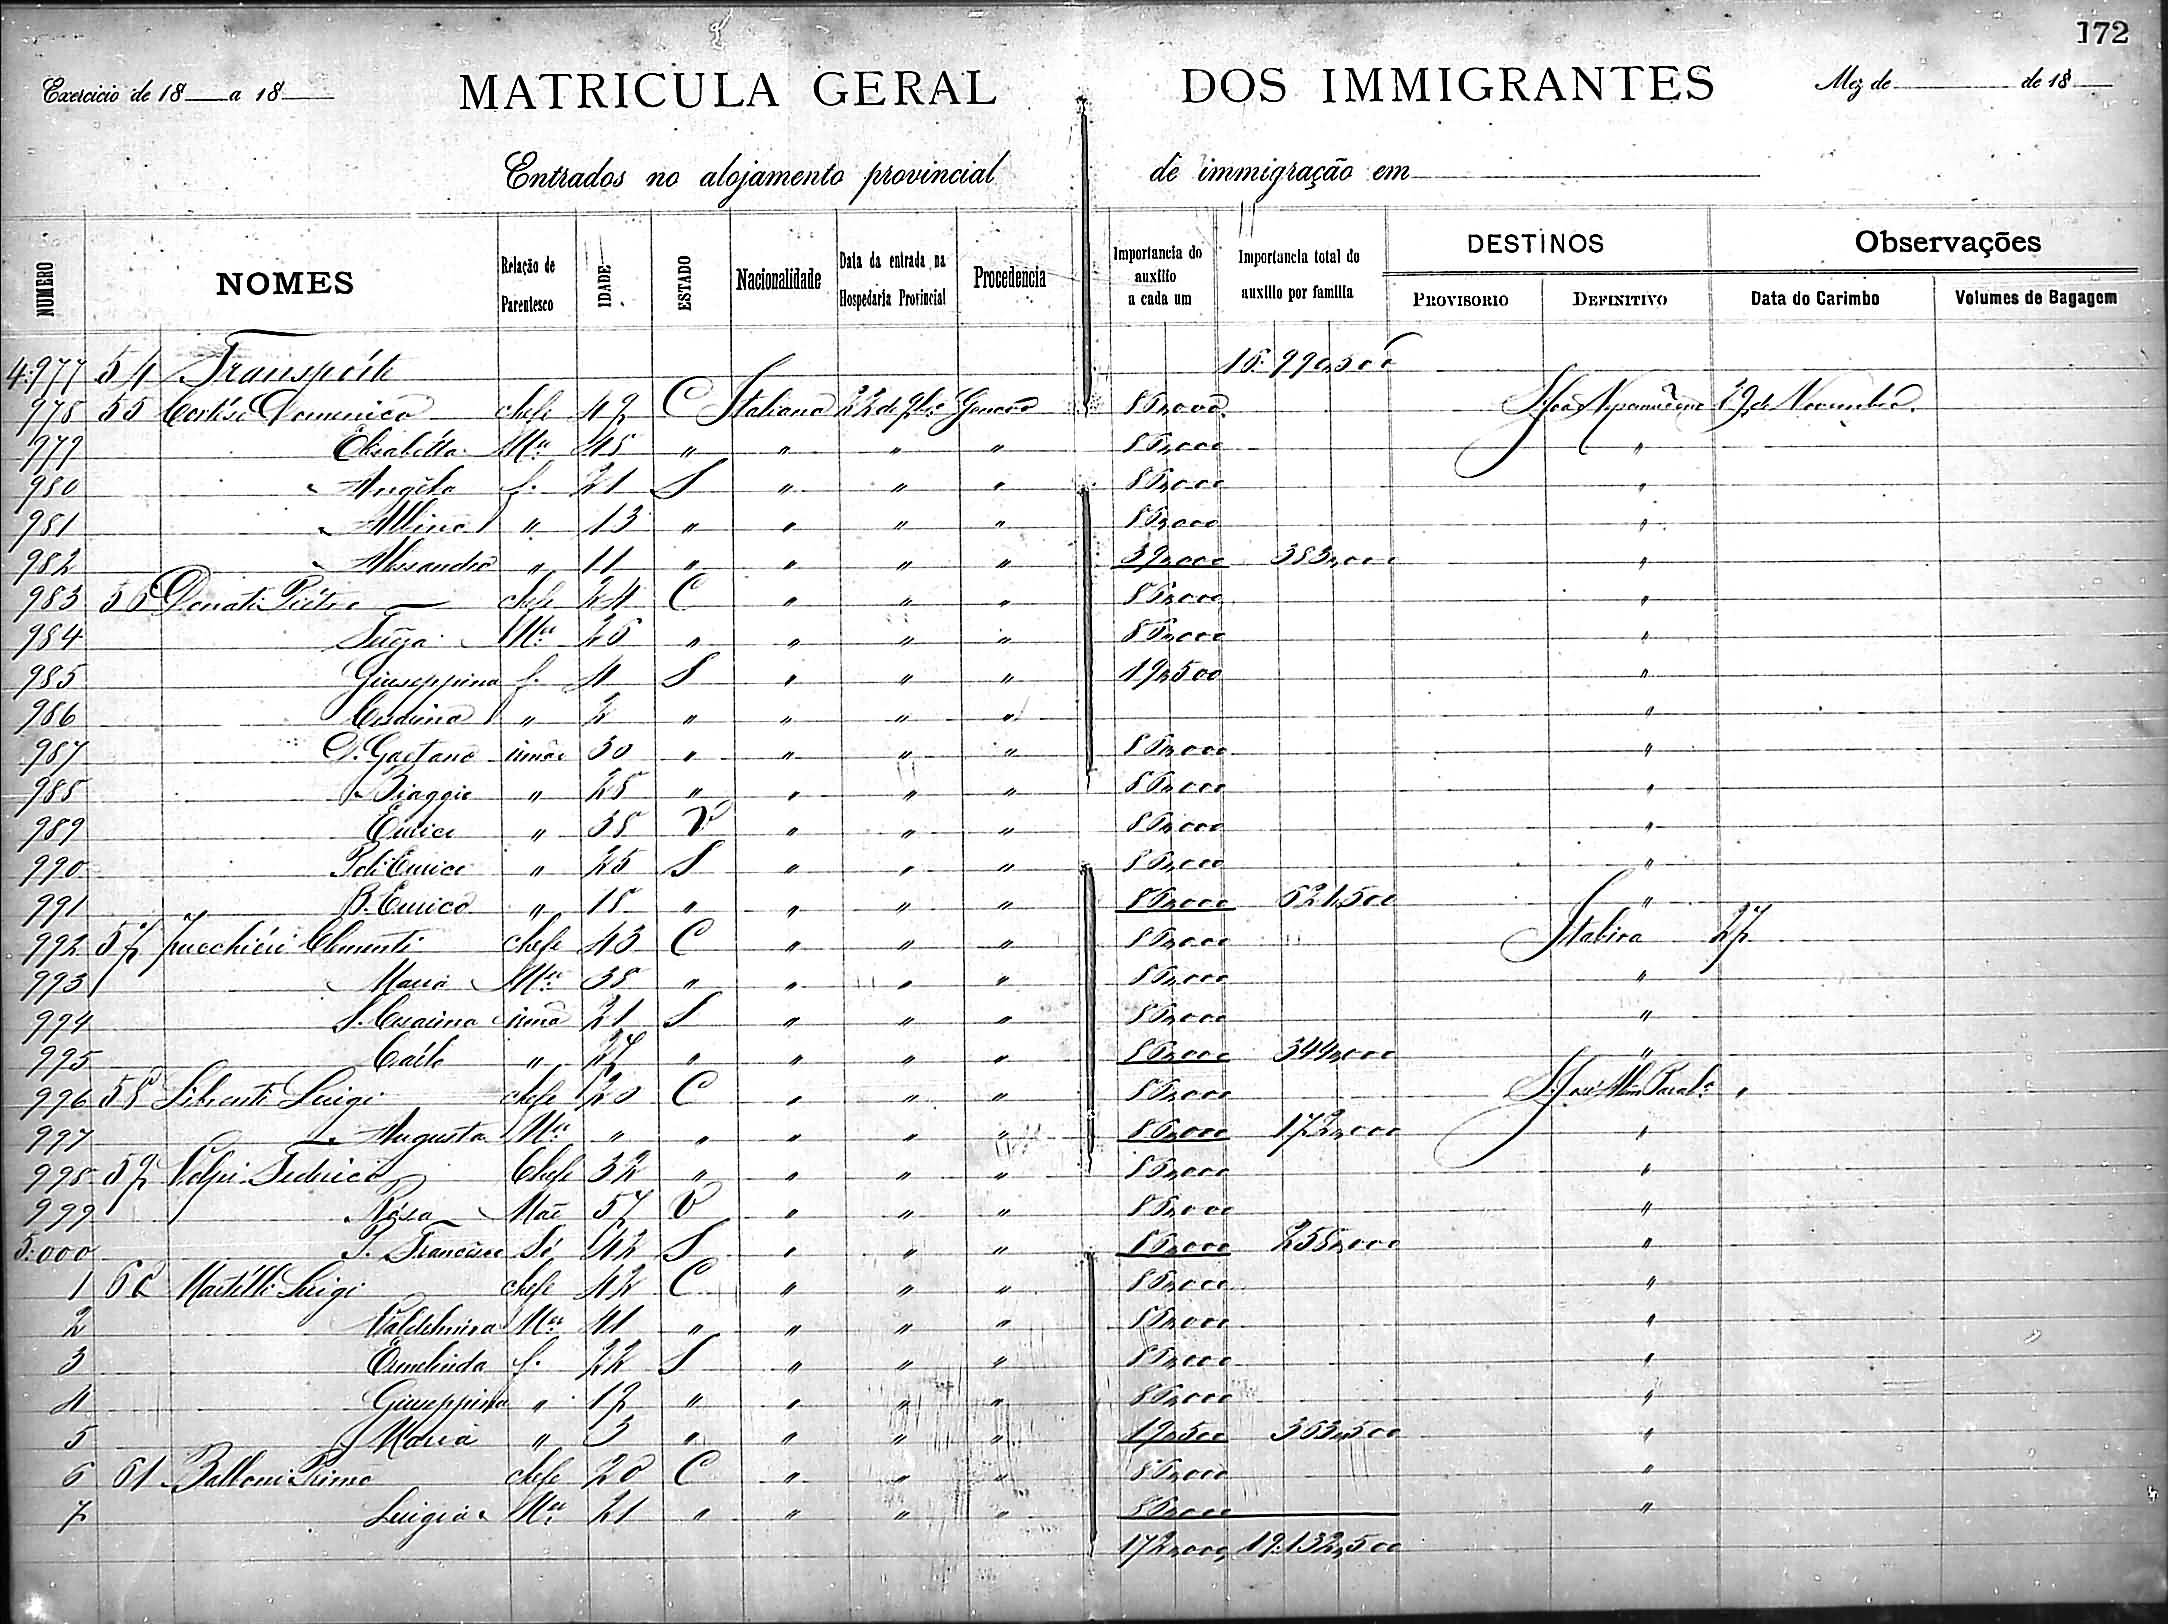 172
Exercicio de 18 a 18
MATRICULA GERAL DOS IMMIGRANTES
Mez de de 18
Entrados no alojamento provincial de immigração em
NUMERO NOMES Relação de Parentesco IDADE ESTADO Nacionalidade Data da entrada na Hospedaria Provincial Procedencia Importancia do auxilio a cada um Importancia total do auxilio por familia DESTINOS Observações
PROVISORIO DEFINITIVO Data do Carimbo Volumes de Bagagem
4.977 54 Transporte 16.990,500
978 55 Domenico chefe 49 C Italiana 22 de 9bro Genova 86,000 29 de Novembro
979 Elisabetta Mer 45 " " " " 86,000 "
980 Angelo f. 21 S " " " 86,000 "
981 Albina " 13 " " " " 86,000 "
982 Alessandro " 11 " " " " 39,000 383,000 "
983 56 Donati Pietro chefe 24 C " " " 86,000 "
984 Mer 26 " " " " 86,000 "
985 Giuseppina f. 4 S " " " 19,500 "
986 Cesarina " 2 " " " " "
987 D. Gaetano irmão 30 " " " " 86,000 "
988 Biaggio " 28 " " " " 86,000 "
989 " 38 V " " " 86,000 "
990 " 25 S " " " 86,000 "
991 " 18 " " " " 86,000 621,500 "
992 57 Clementi chefe 43 C " " " 86,000 Itabira 27
993 Maria Mer 38 " " " " 86,000 "
994 Cesarina irmã 21 S " " " 86,000 "
995 Carlo " 27 " " " " 86,000 344,000 "
996 58 Luigi chefe 20 C " " " 86,000 S. José Alem Parah.a "
997 Augusta Mer " " " " " 86,000 172,000 "
998 59 Volpi Federico Chefe 32 " " " " 86,000 "
999 Rosa Mãe 57 V " " " 86,000 "
5.000 Francisco 42 S " " " 86,000 258,000 "
1 60 Martelli Luigi chefe 42 C " " " 86,000 "
2 Valdelmira Mer 41 " " " " 86,000 "
3 Ermelinda f. 22 S " " " 86,000 "
4 Giuseppina " 19 " " " " 86,000 "
5 Maria " 3 " " " " 19,500 363,500 "
6 61 Balloni Primo chefe 20 C " " " 86,000 "
7 Luigia Mer 21 " " " " 86,000 "
172,000 19.132,500